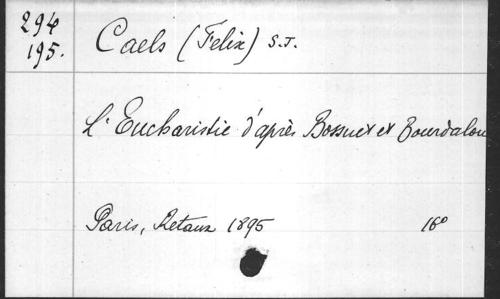 294
195.
Caels (Félix) S.J.
L'Eucharistie d'après Bossuet et Bourdalou
Paris, Retaux 1895 16°